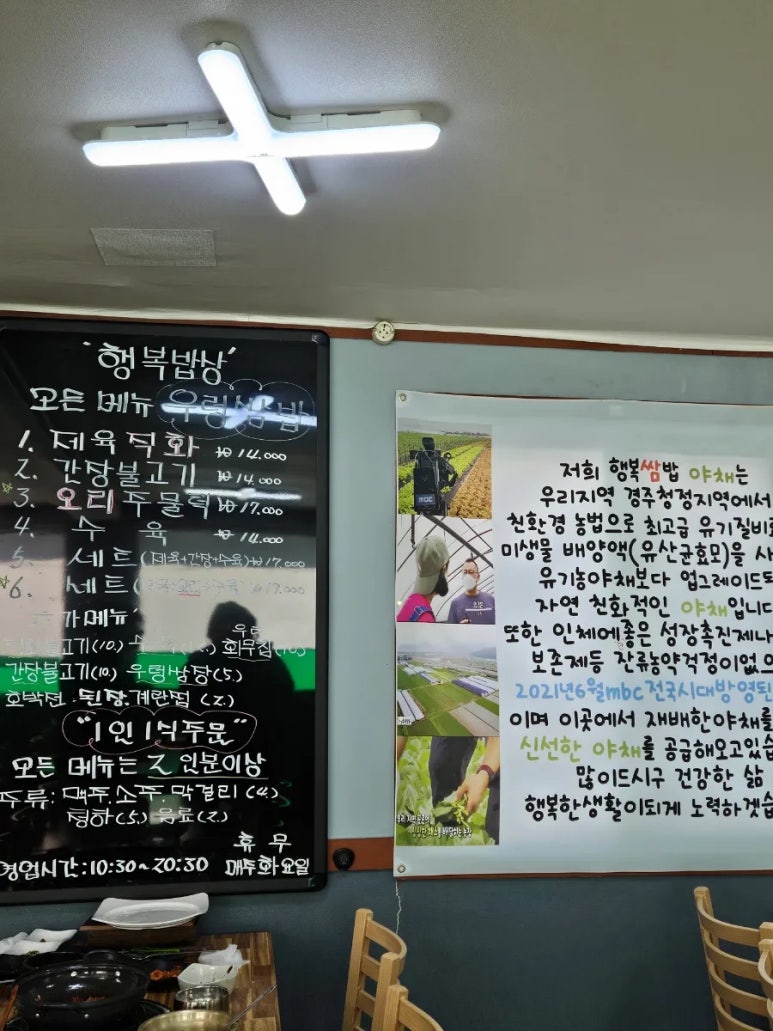 '행복밥상'
모든 메뉴 우렁쌈밥
1. 제육직화 ₩14.000
2. 간장불고기 ₩14.000
☆3. 오리주물럭 ₩17.000
4. 수육 ₩14.000
5. 세트(제육+간장+수육)₩17.000
☆6. 세트(
메뉴'
우렁
불고기(10.) 회무침(10.)
간장불고기(10.) 우렁쌈장(5.)
호박전. 된장. 계란찜 (2.)
"1인1식주문"
모든 메뉴는 2 인분이상
주류: 맥주.소주.막걸리(4.)
청하(5.) 음료(2.)
휴무
영업시간:10:30~20:30 매주화요일
mbc
저희 행복쌈밥 야채는
우리지역 경주청정지역에서
친환경 농법으로 최고급 유기질비료
미생물 배양액(유산균효모)을 사
유기농야채보다 업그레이드된
자연 친화적인 야채입니다
또한 인체에좋은 성장촉진제나
보존제등 잔류농약걱정이없으
2021년6월mbc전국시대방영된
이며 이곳에서 재배한야채를
신선한 야채를 공급해오고있습
많이드시구 건강한 삶
행복한생활이되게 노력하겠습